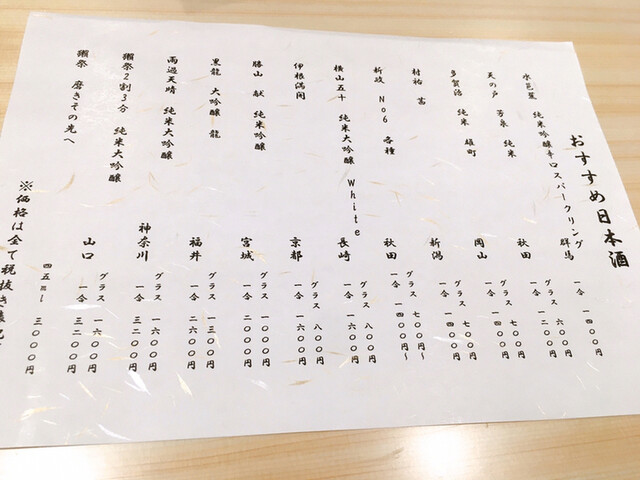 おすすめ日本酒
水芭蕉 純米吟醸辛口スパークリング 群馬 一合 一四〇〇円
天の戸 芳泉 純米 秋田 グラス 六〇〇円
一合 一二〇〇円
多賀治 純米 雄町 岡山 グラス 七〇〇円
一合 一四〇〇円
村祐 茜 新潟 グラス 七〇〇円
一合 一四〇〇円
新政 No6 各種 秋田 グラス 七〇〇円〜
一合 一四〇〇円〜
横山五十 純米大吟醸 White 長崎 グラス 八〇〇円
一合 一六〇〇円
伊根満開 京都 グラス 八〇〇円
一合 一六〇〇円
勝山 献 純米吟醸 宮城 グラス 一〇〇〇円
一合 二〇〇〇円
黒龍 大吟醸 龍 福井 グラス 一三〇〇円
一合 二六〇〇円
雨過天晴 純米大吟醸 神奈川 グラス 一六〇〇円
一合 三二〇〇円
獺祭2割3分 純米大吟醸 山口 グラス 一六〇〇円
一合 三二〇〇円
獺祭 磨きその先へ 四五ml 三〇〇〇円
※価格は全て税抜き表記